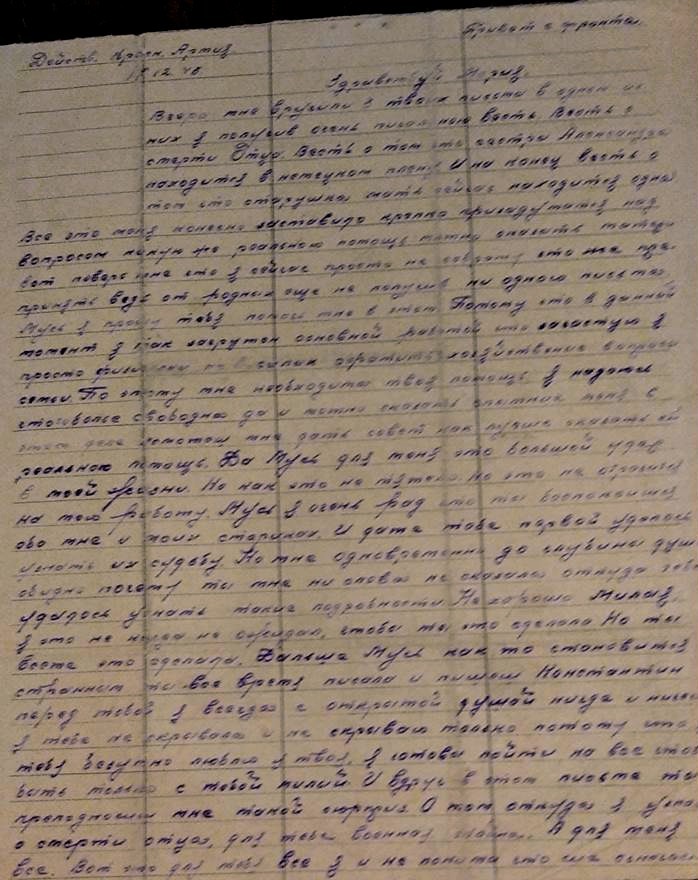 Привет с фронта.
Действ. Красн. Армия
12
Здравствуй Мария.
Вчера мне вручили 3 твоих письма в одном из
них я получил очень печальную весть. Весть о
смерти Отца. Весть о том что сестра Александра
находится в немецком плену. И на конец весть о
том что старушка мать сейчас находится одна
Все это меня конечно заставило крепко призадуматся над
вопросом какую же реальною помощь можно оказать матери
вот поверь мне что я сейчас просто не
принять ведь от родных еще не получил ни одного письма.
Мусь я прошу тебя помочь мне в этом. Потому что в данный
момент я так загружен основной работой что зачастую я
просто не в силах хозяйственние вопросы
семьи. По этому мне необходима твоя помощь. Я надеюсь
свободна да и можно сказать опытние меня в
этом деле мне дать совет как лучше оказать ей
реальною помощь. Да Мусь для меня это большой удар
в моей жизни. Но как это не тяжело но это не отразится
на мою работу. Мусь я очень рад что ты
обо мне и моих стариках. И даже тебе первой удалось
узнать их судьбу. Но мне одновременно до глубины душ
обидно почему ты мне ни слова не сказала откуда тебе
удалось узнать такие подробности. Не хорошо Милая,
я это не когда не ожидал, чтобы ты это сделала. Но ты
это сделала. Дальше Мусь как то становится
странным ты все время писала и пишеш Константин
перед тобой я всегда с открытой душой нигда и ничего
я тебе не скрывала и не скрываю только потому что
тебя безумно люблю я твоя, я готова пойти на все чтоб
быть только с тобой милый. И вдруг в этом письме ты
преподносиш мне такой сюрприз. О том откуда я узнала
о смерти отца, для тебя военная тайна. А для меня
все. Вот это для тебя все я и не понял что оно означает